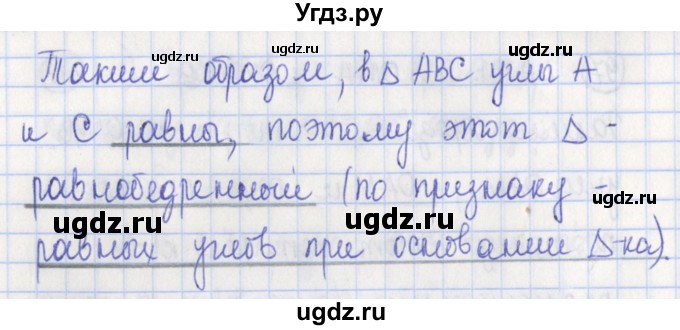 Угдз.ру
Таким образом, в Δ ABC углы A
и C равны, поэтому этот Δ -
равнобедренный (по признаку -
равных углов при основании Δ-ка).
ugdz.ru
ugdz.ru
ugdz.ru
ugdz.ru
ugdz.ru
ugdz.ru
ugdz.ru
ugdz.ru
ugdz.ru
ugdz.ru